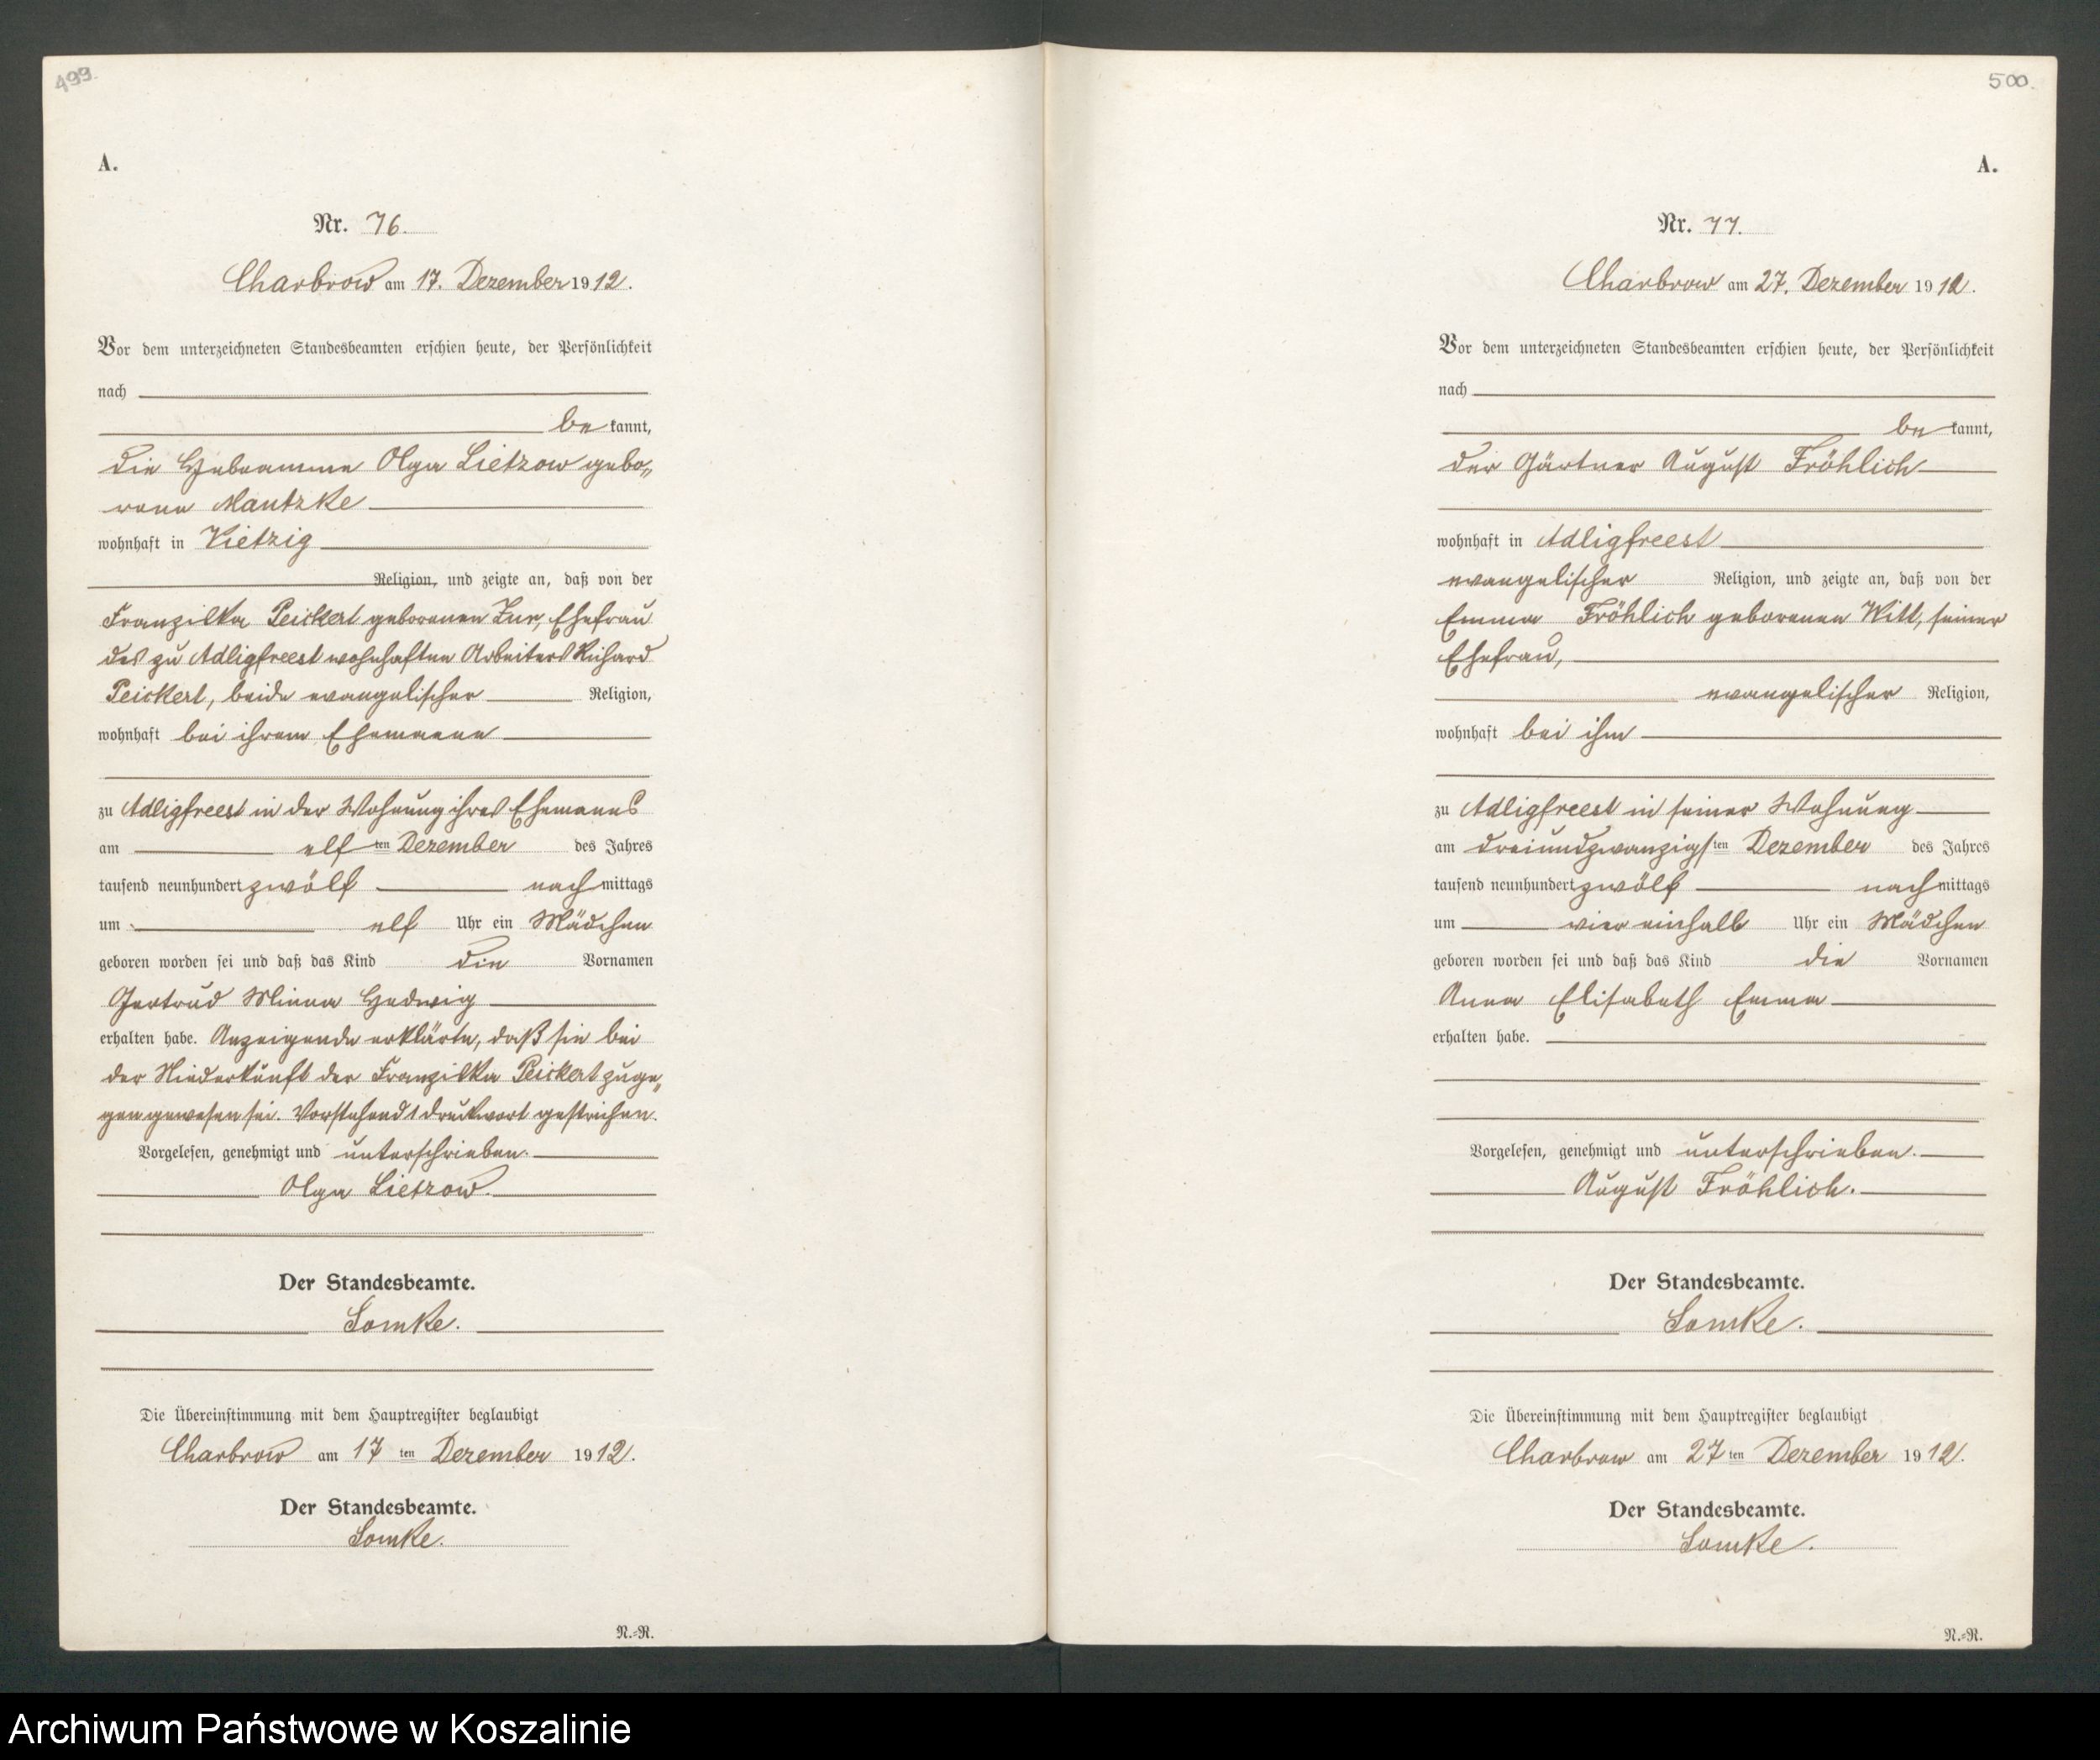 499.
A.
Nr. 76.
Charbrow am 17. Dezember 1912.
Vor dem unterzeichneten Standesbeamten erschien heute, der Persönlichkeit
nach
be kannt,
die Hebeamme Olga Lietzow gebo„
rene Mantzke
wohnhaft in Vietzig
Religion, und zeigte an, daß von der
Franziska Peickert geborenen Zur, Ehefrau
des zu Adligfreest wohnhaften Arbeiters Richard
Peickert, beide evangelischer Religion,
wohnhaft bei ihrem Ehemanne
zu Adligfreest in der Wohnung ihres Ehemanns
am elf ten Dezember des Jahres
tausend neunhundert zwölf nach mittags
um elf Uhr ein Mädchen
geboren worden sei und daß das Kind die Vornamen
Gertrud Minna Hedwig
erhalten habe. Anzeigende erklärte, daß sie bei
der Niederkunft der Franziska Peickert zuge„
gen gewesen sei. Vorstehend 1 Druckwort gestrichen.
Vorgelesen, genehmigt und unterschrieben.
Olga Lietzow.
Der Standesbeamte.
Somke.
Die Übereinstimmung mit dem Hauptregister beglaubigt
Charbrow am 17 ten Dezember 1912.
Der Standesbeamte.
Somke.
N.=R.
500.
A.
Nr. 77.
Charbrow am 27. Dezember 1912.
Vor dem unterzeichneten Standesbeamten erschien heute, der Persönlichkeit
nach
be kannt,
der Gärtner August Fröhlich
wohnhaft in Adligfreest
evangelischer Religion, und zeigte an, daß von der
Emma Fröhlich geborenen Witt, seiner
Ehefrau,
evangelischer Religion,
wohnhaft bei ihm
zu Adligfreest in seiner Wohnung
am dreiundzwanzigs ten Dezember des Jahres
tausend neunhundert zwölf nach mittags
um vier einhalb Uhr ein Mädchen
geboren worden sei und daß das Kind die Vornamen
Anna Elisabeth Emma
erhalten habe.
Vorgelesen, genehmigt und unterschrieben.
August Fröhlich.
Der Standesbeamte.
Somke.
Die Übereinstimmung mit dem Hauptregister beglaubigt
Charbrow am 27 ten Dezember 1912.
Der Standesbeamte.
Somke.
N.=R.
Archiwum Państwowe w Koszalinie